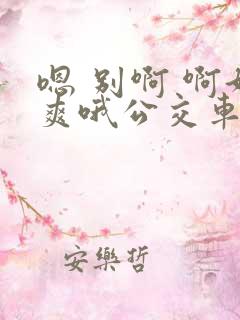 嗯 别啊 啊好
爽哦公交车
安樂哲